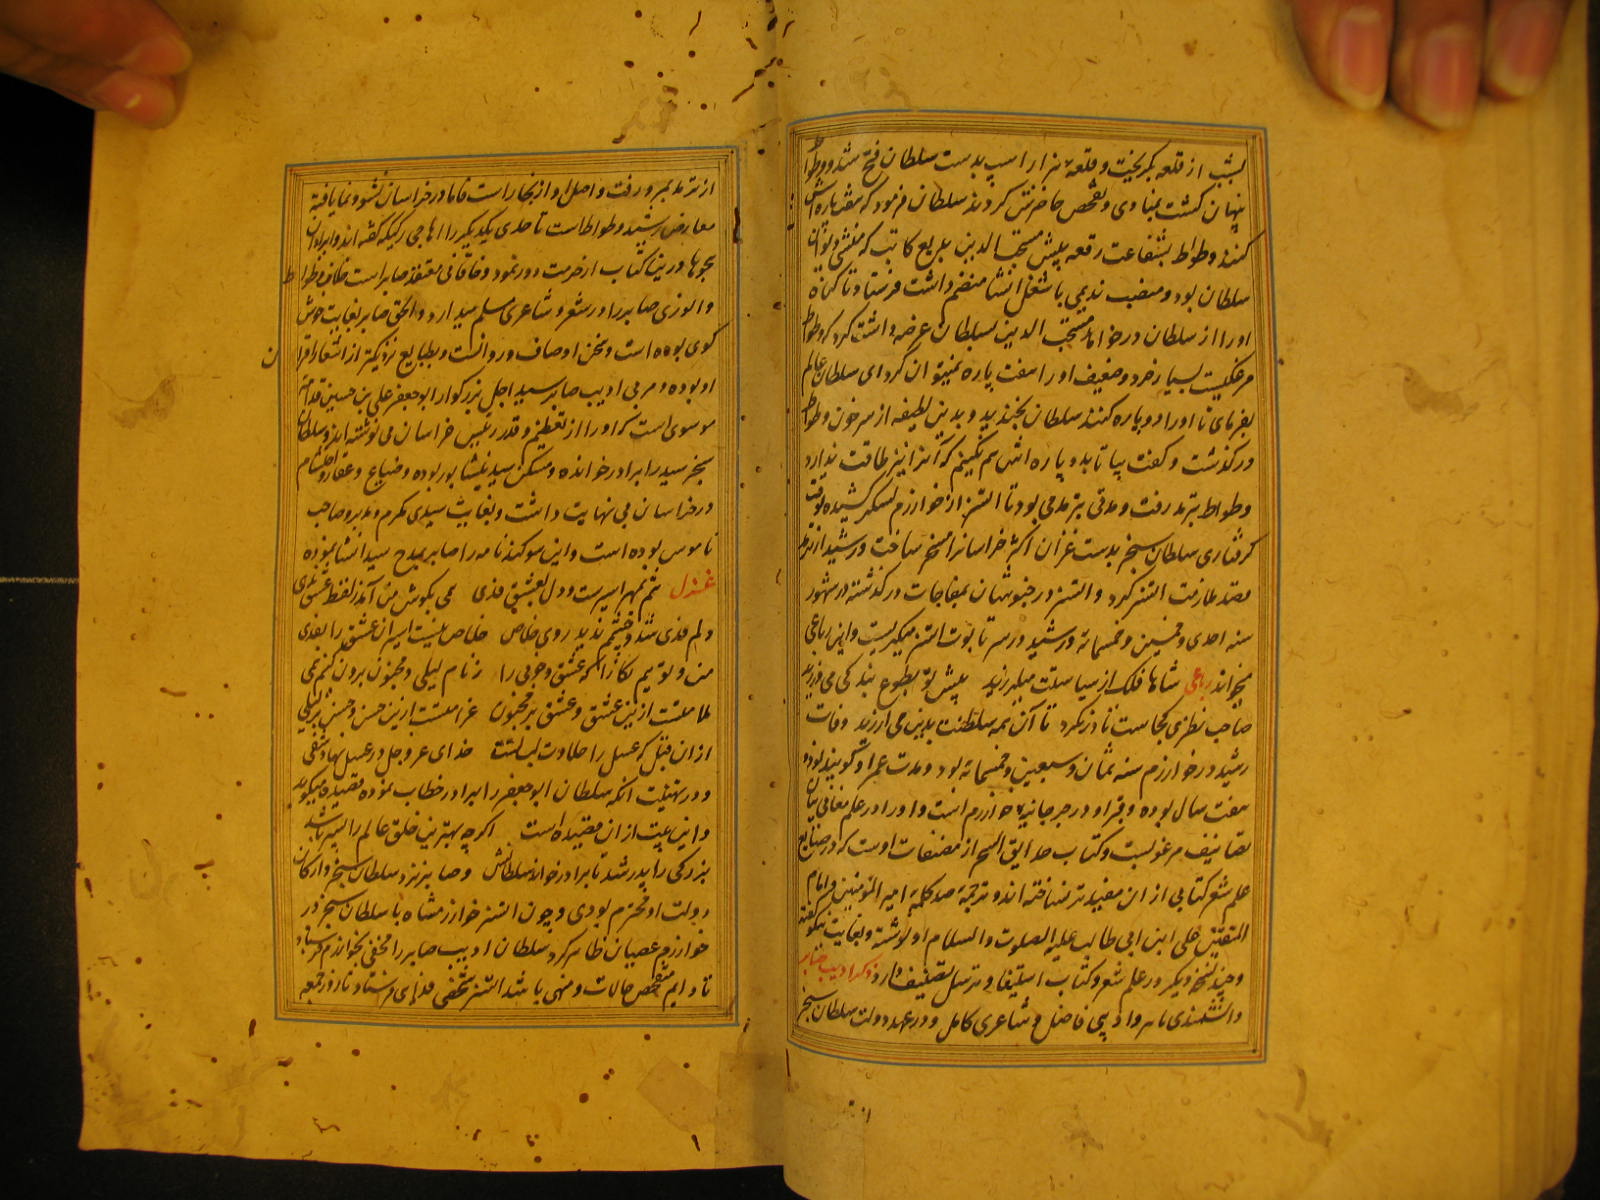 بشب از قلعه بگریخت و قلعه هزار اسپ بدست سلطان فتح شد و وطواط
پنهان گشت بمنادی و تفحص حاضرش کردند سلطان فرمود که هفت پاره اش
کنند وطواط بشفاعت رقعه پیش منتجب الدین بدیع کاتب که منشی دیوان
سلطان بود و منصب ندیمی با شغل انشا منضم داشت فرستاد تا گناه
او را از سلطان درخواهد منتجب الدین بسلطان عرضه داشت کرد که وطواط
مرغکیست بسیار خرد و ضعیف او را هفت پاره نمیتوان کرد ای سلطان عالم
بفرمای تا او را دو پاره کنند سلطان بخندید و بدین لطیفه از سر خون وطواط
درگذشت و گفت بیا تا بدو پاره اش هم نکنیم که آنرا نیز طاقت ندارد
و وطواط بترمد رفت و مدتی بترمد می بود تا اتسز از خوارزم لشکر کشیده بوقت
گرفتاری سلطان سنجر بدست غزان اکثر خراسانرا مسخر ساخت و رشید از ترمد
قصد ملازمت اتسز کرد و اتسز در خبوشان بمفاجات درگذشته در شهور
سنه احدی و خمسین و خمسمائه و رشید در سر تابوت اتسز میگریست و این رباعی
میخواند رباعی شاها فلک از سیاستت میلرزید پیش تو بطوع بندگی می ورزید
صاحب نظری کجاست تا درنگرد تا آن همه سلطنت بدین می ارزید وفات
رشید در خوارزم سنه ثمان و سبعین و خمسمائه بود و مدت عمر او گویند نود و
هفت سال بوده و قبر او در جرجانیه خوارزم است و او را در علم معانی بیان
تصانیف مرغوبست و کتاب حدایق السحر از مصنفات اوست که در صنایع
علم شعر کتابی از ان مفیدتر نساخته اند و ترجمه صد کلمه امیر المؤمنین و امام
المتقین علی ابن ابی طالب علیه الصلوت والسلام او نوشته و بغایت نیکو گفته
و چند نسخه دیگر در علم شعر و کتاب استیفا و ترسل تصنیف دارد ذکر ادیب صابر
دانشمندی ماهر و ادیبی فاضل و شاعری کامل و در عهد دولت سلطان سنجر
از ترمد
از ترمد بمرو رفت و اصل او از بخاراست فاما در خراسان نشو و نما یافته
معارض رشید وطواطست تا حدی یکدیگر را اهاجی رکیکه گفته اند و ایراد آن
هجوها درینکتاب از خرمت دور نمود و خاقانی معتقد صابر است خلاف وطواط
و انوری صابر را در شعر و شاعری مسلم میدارد و الحق صابر بغایت خوش
گوی بوده است و سخن او صاف و روانست و بطبایع نزدیکتر از اشعار اقران
او بوده و مربی ادیب صابر سید اجل بزرگوار ابوجعفر علی بن حسین قدامه
موسوی است که او را از تعظیم و قدر رئیس خراسان می نوشته اند و سلطان
سنجر سید را برادر خوانده و مسکن سید نیشابور بوده و ضیاع و عقار و احتشام
در خراسان بی نهایت داشت و بغایت سیدی مکرم و مدبر و صاحب
ناموس بوده است و این سوگندنامه را صابر بمدح سید انشا نموده
غزل تنم بمهر اسیرست و دل بعشق فدی همی بگوش من آمد ز لفظ عشق ندی
دلم فدی شد و چشمم ندید روی خلاص خلاص نیست اسیران عشق را بفدی
من و تو ییم نگارا که عشق و خوبی را ز نام لیلی و مجنون برون کنیم همی
ملامتست ازین عشق و عشق بر مجنون غرامتست ازین حسن و حسن بر لیلی
از ان قبل که عسل را حلاوت لب تست خدای عز و جل در عسل نهاد شفی
و در تهنیت آنکه سلطان ابوجعفر را برادر خطاب نموده قصیده میگوید
و این بیت از ان قصیده است اگرچه بهترین خلق عالم را پسر باشد
بزرگی را پدر شد تا برادر خواند سلطانش و صابر نزد سلطان سنجر و ارکان
دولت او محترم بودی و چون اتسز خوارزمشاه با سلطان سنجر در
خوارزم عصیان ظاهر کرد سلطان ادیب صابر را مخفی بخوارزم فرستاد
تا دایم متفحص حالات و منهی باشد اتسز شخصی فدای فرستاد تا روز جمعه